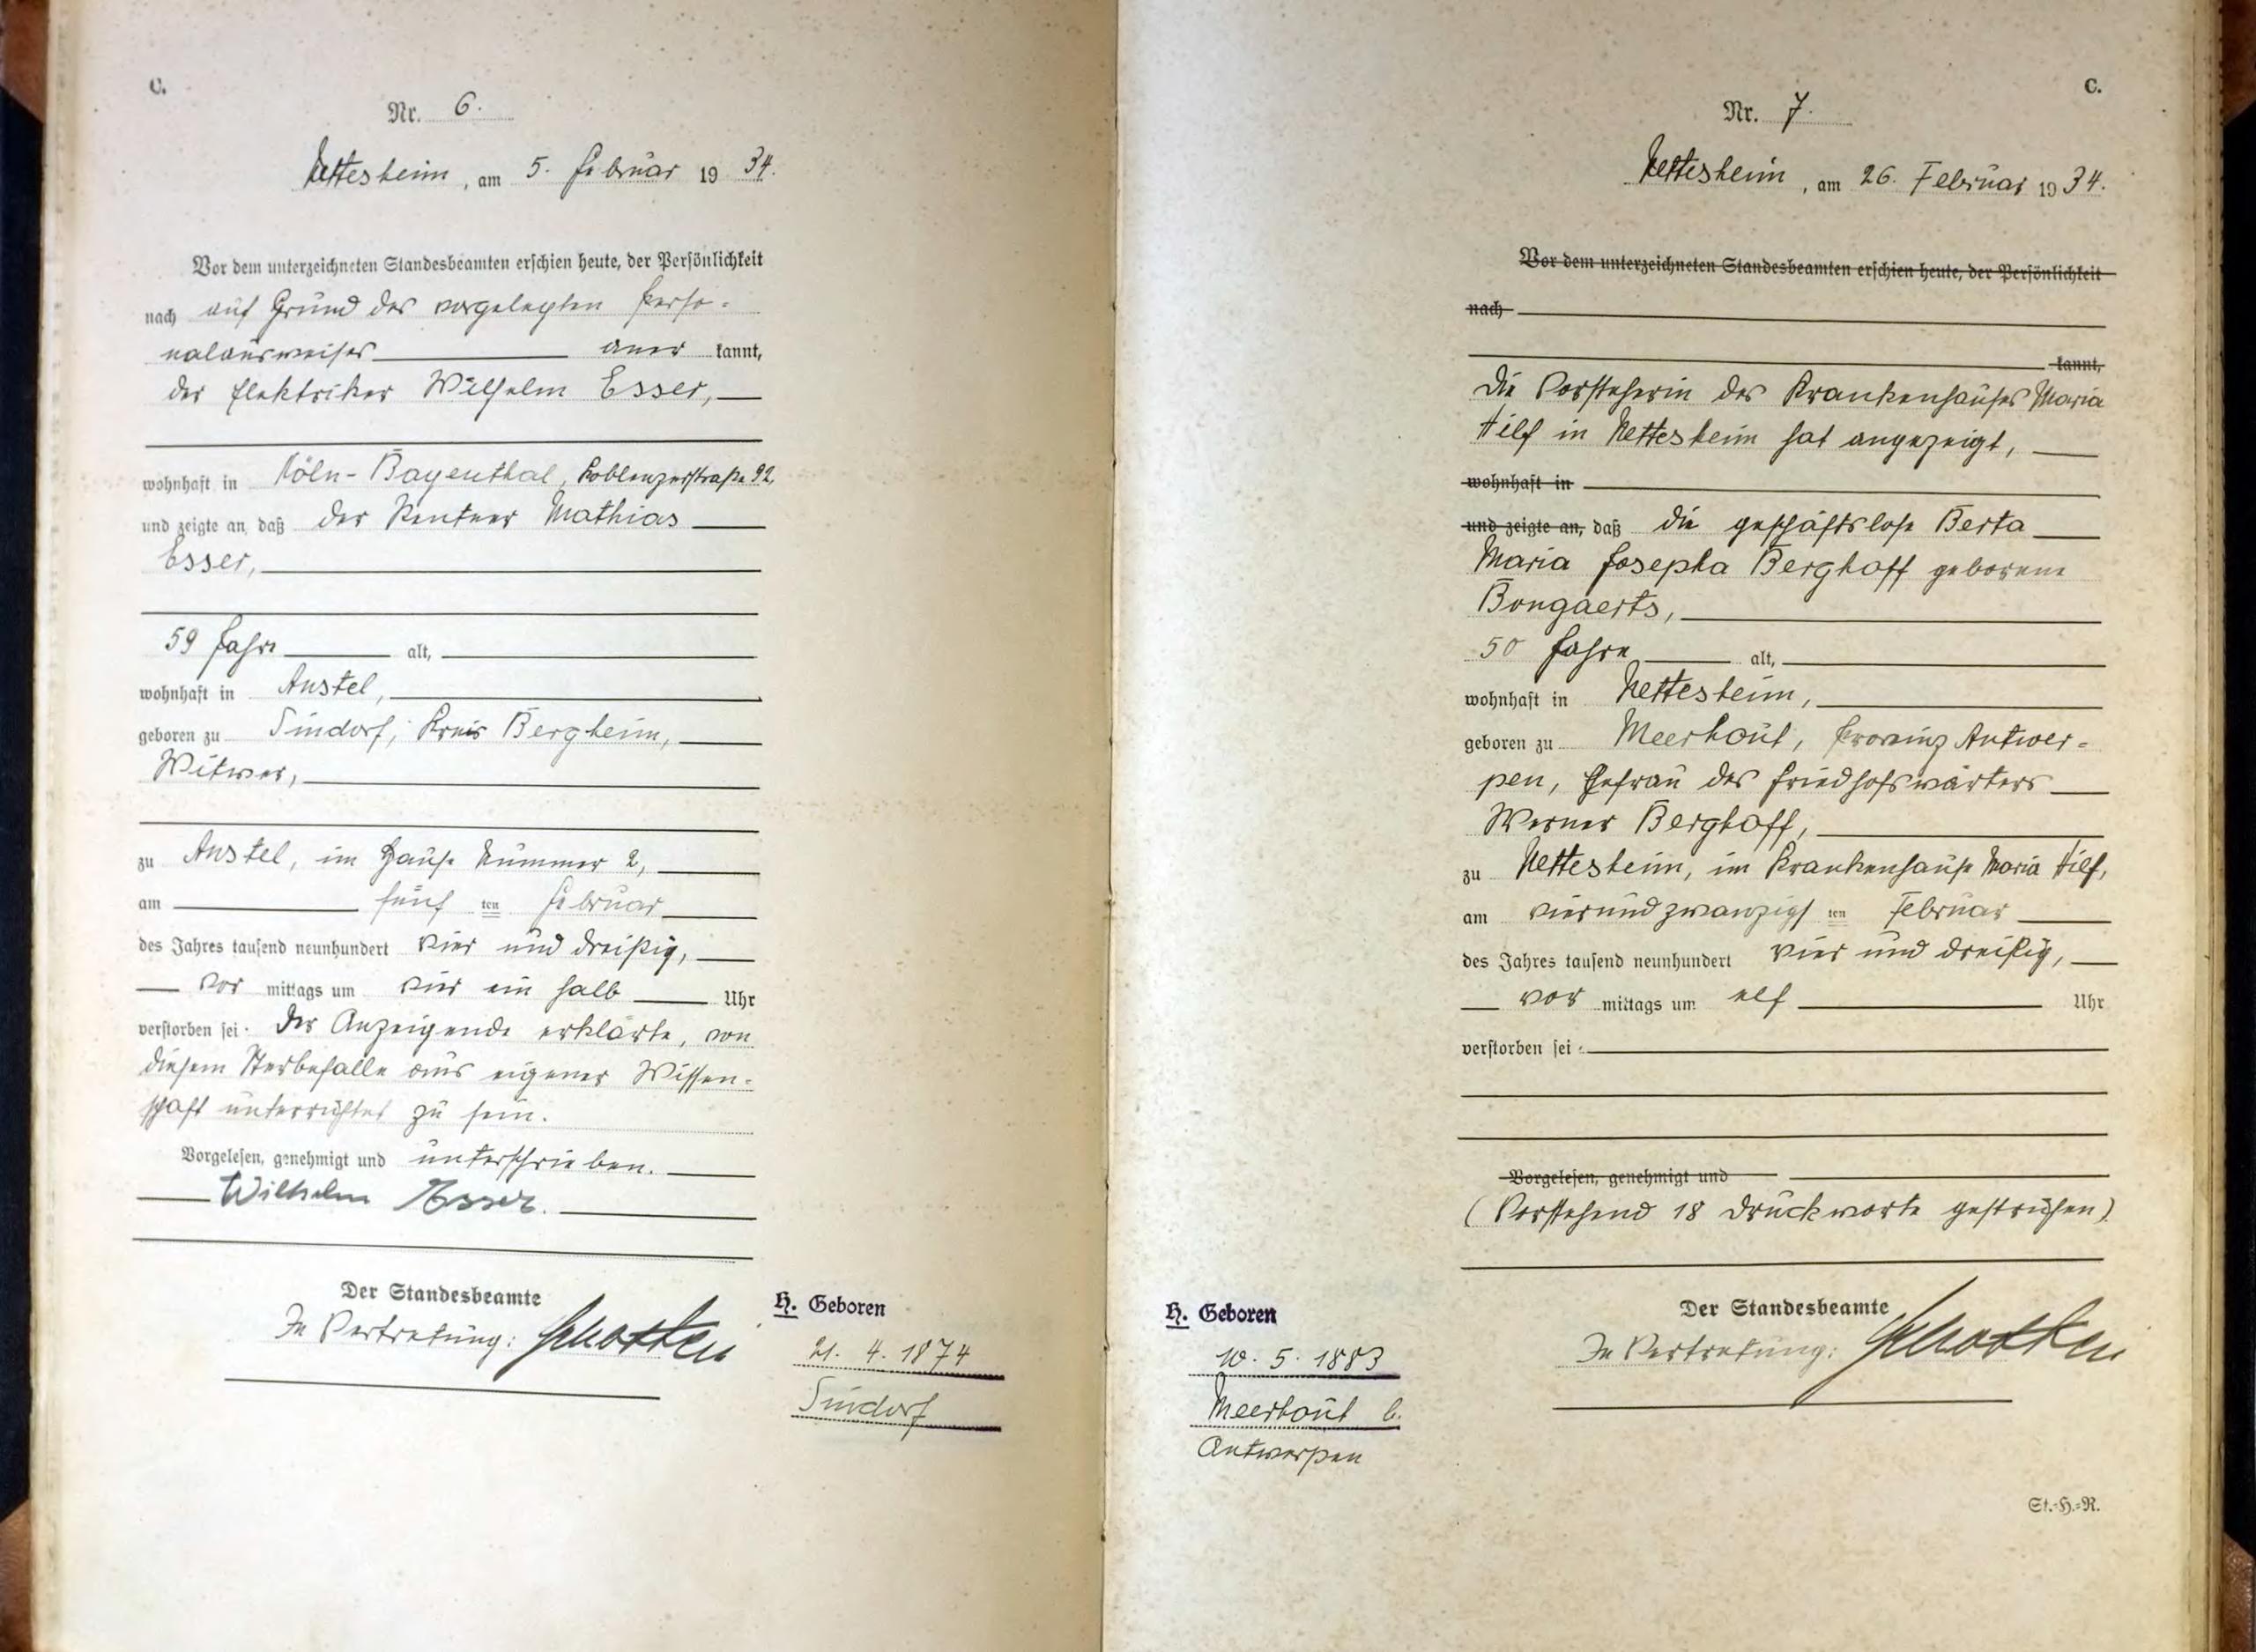 C.
Nr. 6.
Nettesheim, am 5. Februar 1934.
Vor dem unterzeichneten Standesbeamten erschien heute, der Persönlichkeit
nach auf Grund des vorgelegten Perso-
nalausweises aner kannt,
der Elektriker Wilhelm Esser,
wohnhaft in Köln-Bayenthal, Koblenzerstraße 92,
und zeigte an, daß der Rentner Mathias
Esser,
59 Jahre alt,
wohnhaft in Anstel,
geboren zu Sindorf, Kreis Bergheim,
Witwer,
zu Anstel, im Hause Nummer 2,
am fünf ten Februar
des Jahres tausend neunhundert vier und dreißig,
vor mittags um vier ein halb Uhr
verstorben sei. Der Anzeigende erklärte, von
diesem Sterbefalle aus eigener Wissen-
schaft unterrichtet zu sein.
Vorgelesen, genehmigt und unterschrieben.
Wilhelm Esser.
Der Standesbeamte
In Vertretung: Schotten
H. Geboren
21. 4. 1874
Sindorf
C.
Nr. 7.
Nettesheim, am 26. Februar 1934.
Vor dem unterzeichneten Standesbeamten erschien heute, der Persönlichkeit
nach
kannt,
Die Vorsteherin des Krankenhauses Maria
Hilf in Nettesheim hat angezeigt,
wohnhaft in
und zeigte an, daß die geschäftslose Berta
Maria Josepha Berghoff geborene
Bongaerts,
50 Jahre alt,
wohnhaft in Nettesheim,
geboren zu Meerhout, Provinz Antwer-
pen, Ehefrau des Friedhofswärters
Werner Berghoff,
zu Nettesheim, im Krankenhause Maria Hilf,
am vierundzwanzigs ten Februar
des Jahres tausend neunhundert vier und dreißig,
vor mittags um elf Uhr
verstorben sei.
Vorgelesen, genehmigt und
(Vorstehend 18 Druckworte gestrichen)
Der Standesbeamte
In Vertretung: Schotten
H. Geboren
10. 5. 1883
Meerhout b.
Antwerpen
St.-H.-R.